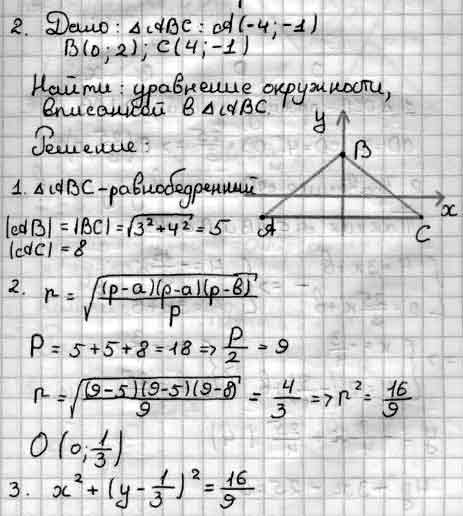 2. Дано: △ABC: A(-4;-1)
B(0;2); C(4;-1)
Найти: уравнение окружности,
вписанной в △ABC.
Решение:
y
B
x
A
C
1. △ABC-равнобедренный
|AB| = |BC| = √(3² + 4²) = 5
|AC| = 8
2. r = √((p-a)(p-a)(p-b)/p)
P = 5 + 5 + 8 = 18 => P/2 = 9
r = √((9-5)(9-5)(9-8)/9) = 4/3 => r² = 16/9
O (0; 1/3)
3. x² + (y - 1/3)² = 16/9